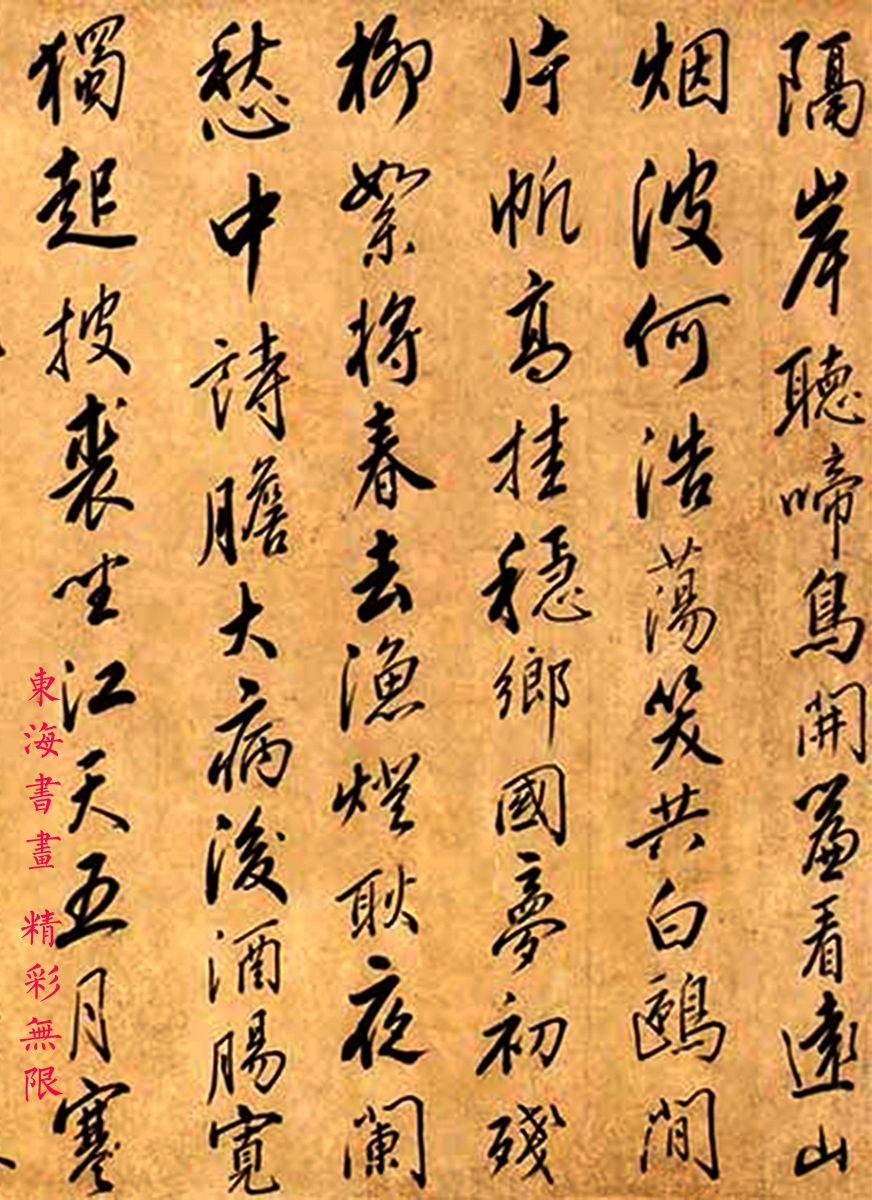 隔岸聽啼鳥開簾看遠山
烟波何浩蕩笑共白鷗閒
片帆高挂穩鄉國夢初殘
柳絮將春去漁燈耿夜闌
愁中詩膽大病後酒腸寬
獨起披裘坐江天五月寒
東海書畫 精彩無限